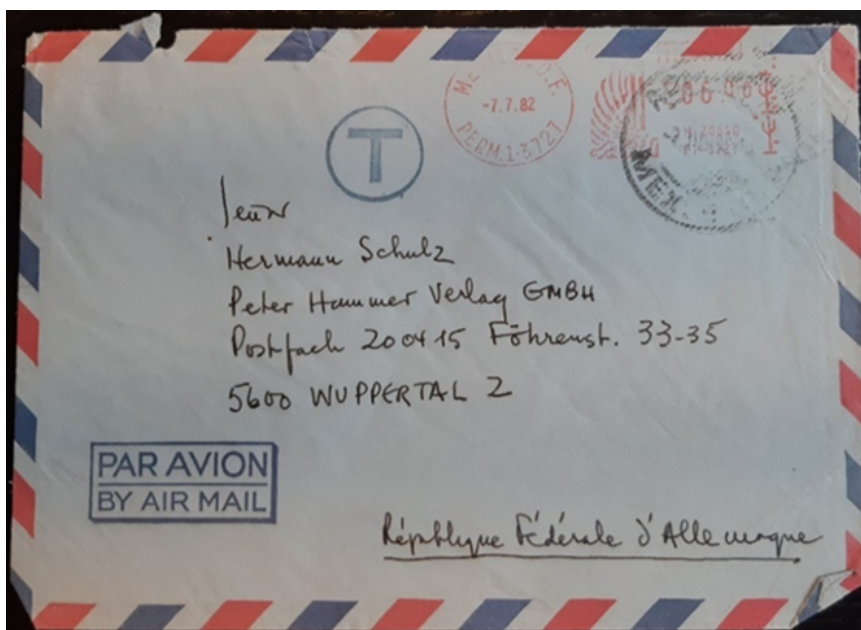 MEXICO D.F.
-7.7.82
PERM.1-3727
06.00
T
MEX.
Hermann Schulz
Peter Hammer Verlag GMBH
Postfach 200415 Föhrenst. 33-35
5600 WUPPERTAL 2
PAR AVION
BY AIR MAIL
République Fédérale d'Allemagne